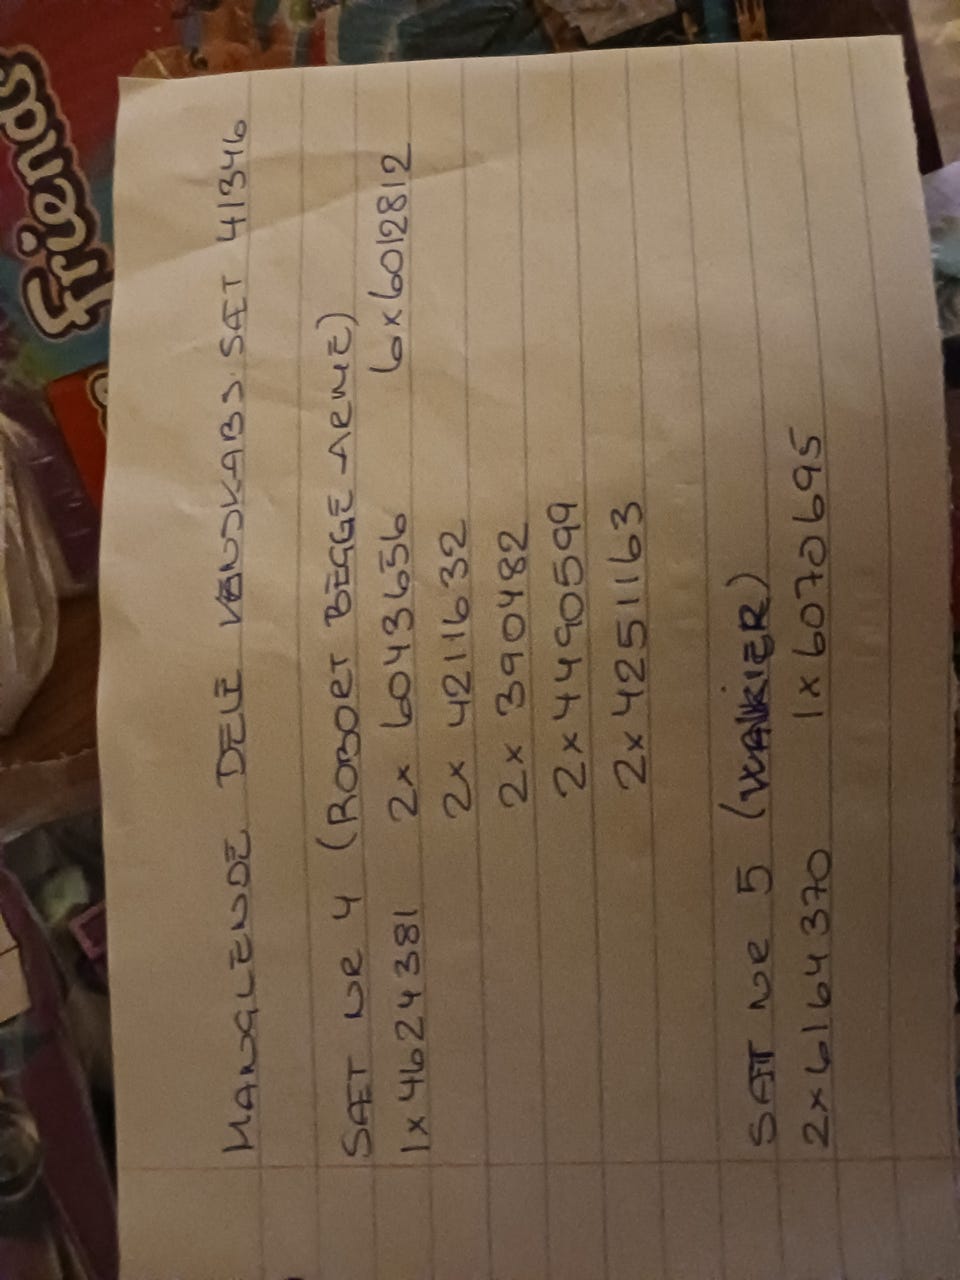 Friends
MANGLENDE DELE VENSKABS. SÆT 41346
SÆT NR 4 (ROBORT BEGGE ARME)
1x4624381 2x 6043656 6x6012812
2x 4211632
2x 390482
2x4490599
2x4251163
SÆT NR 5
2x6164370 1x6070695